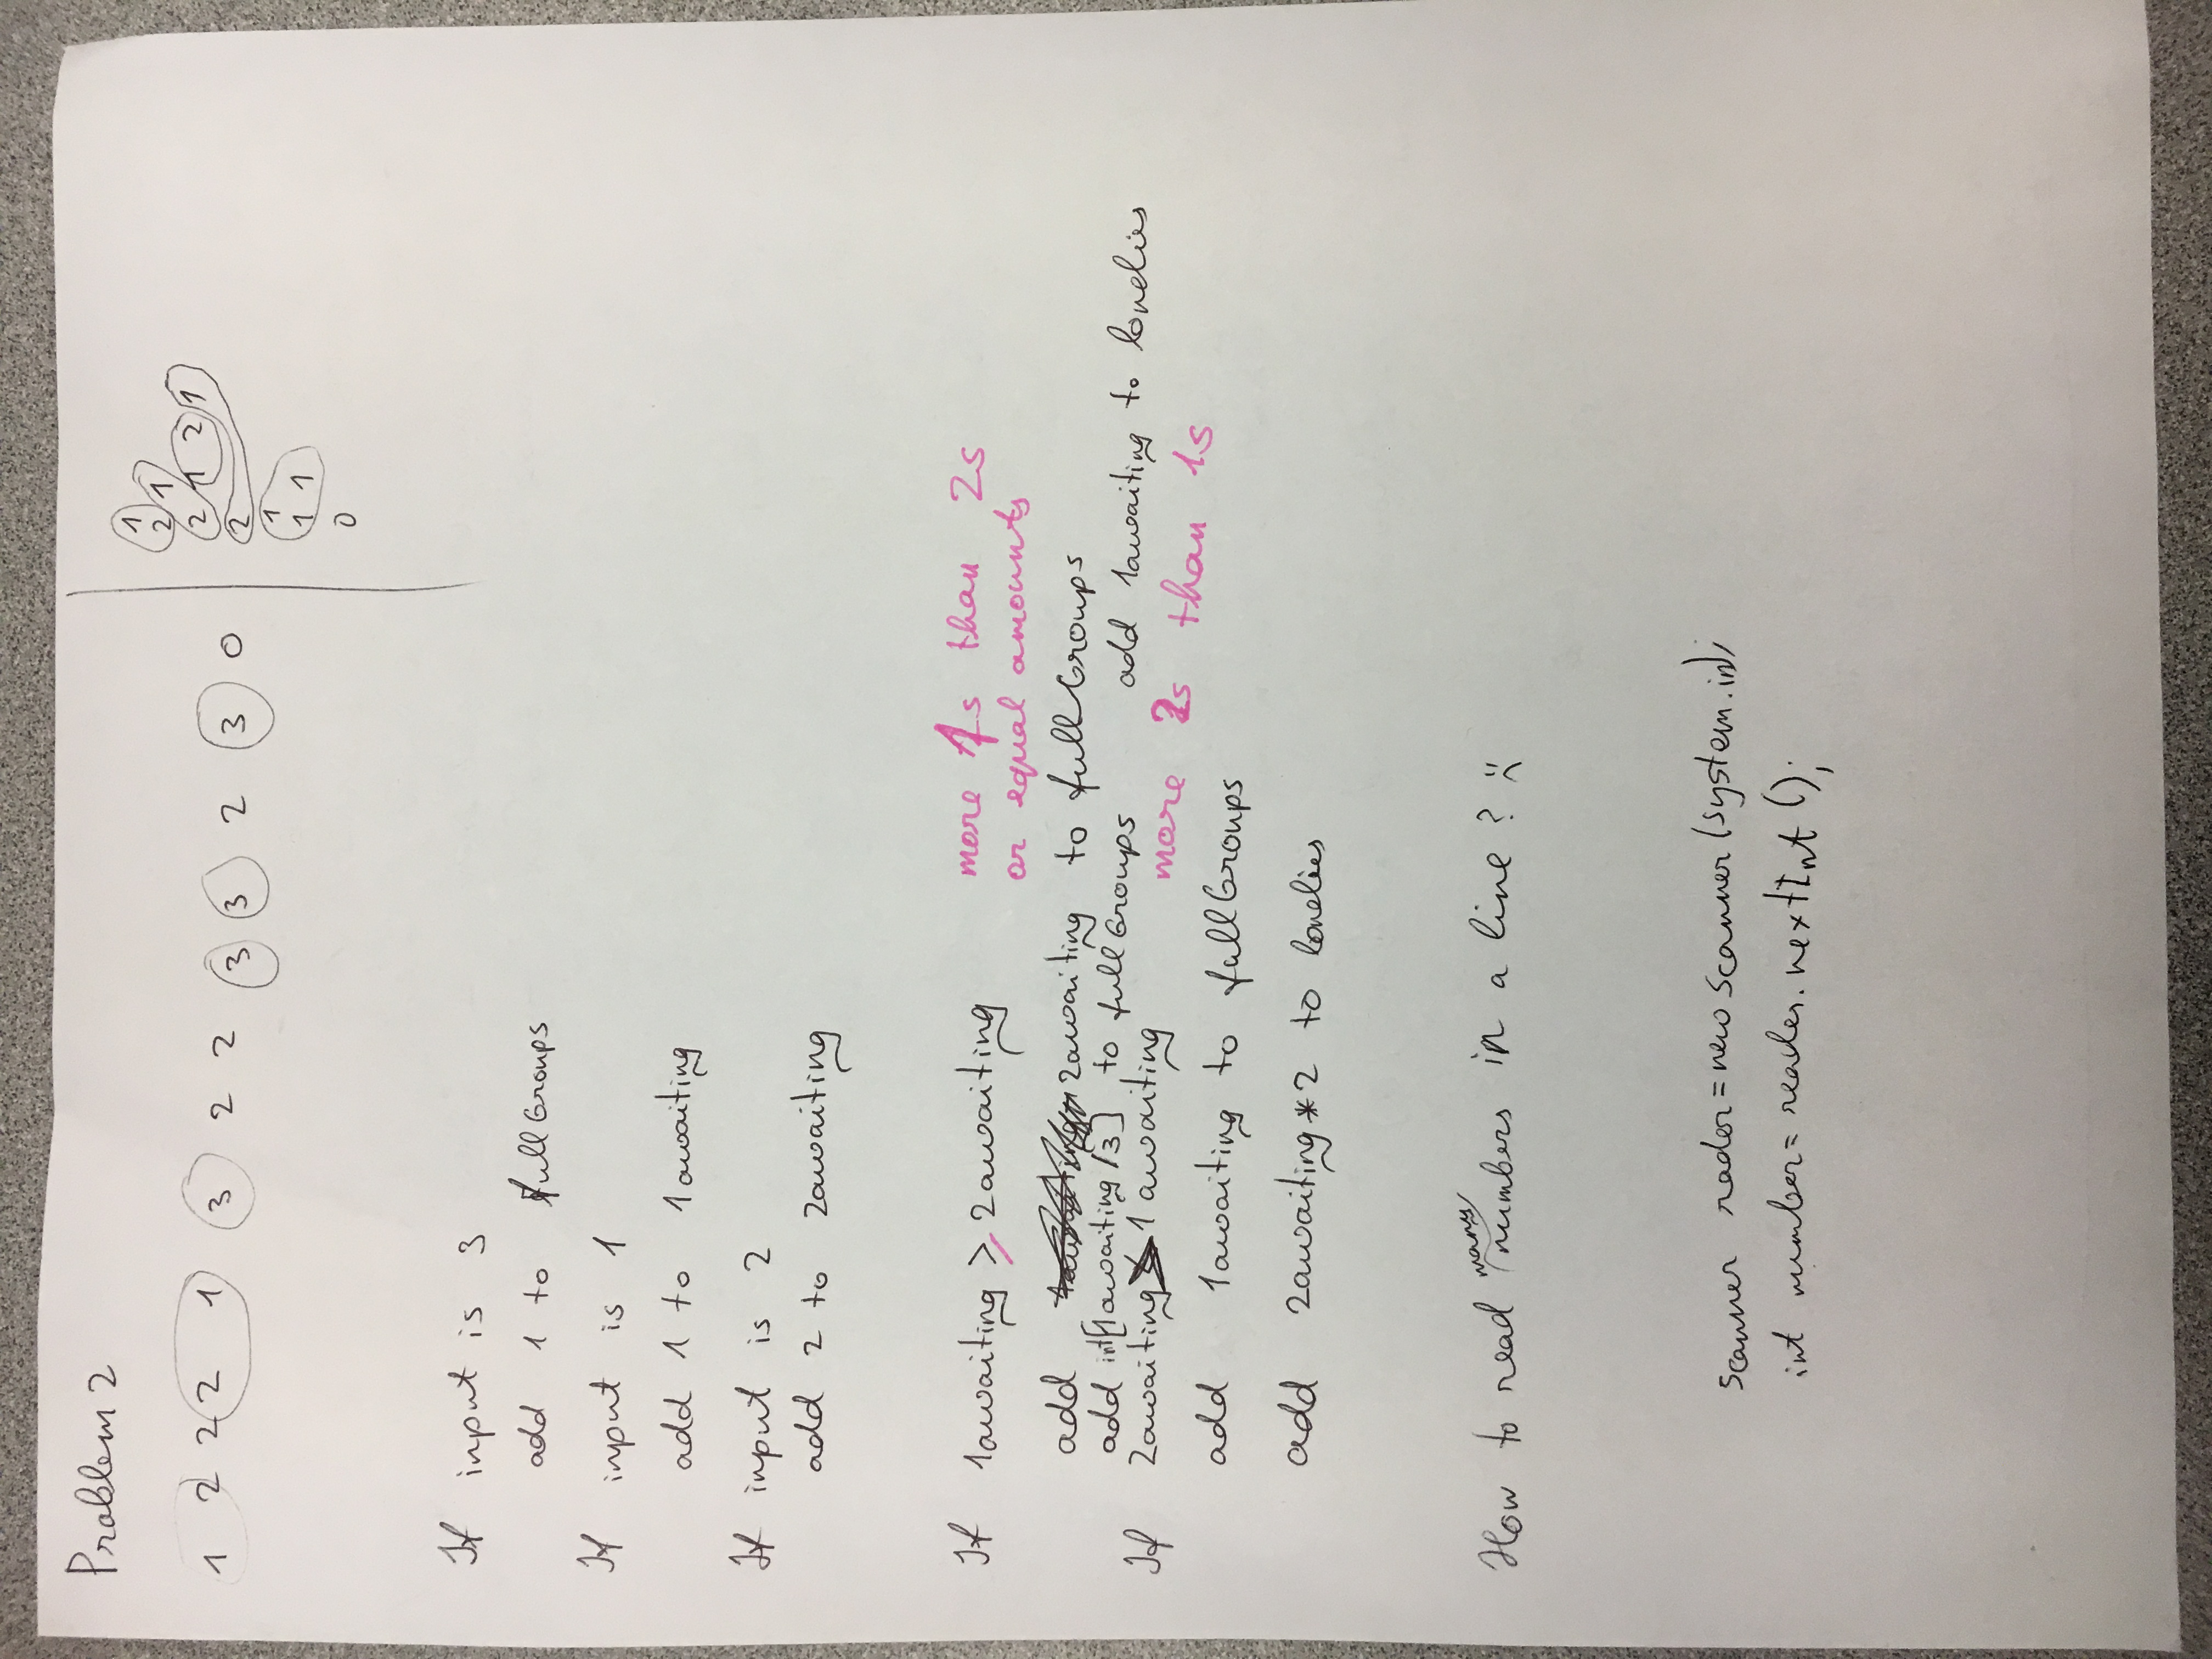 Problem 2
1 2 2 2 1 3 2 2 3 3 2 3 0
1
2 1
2 1 2 1
2
1
1 1
0
If input is 3
add 1 to fullGroups
If input is 1
add 1 to 1awaiting
If input is 2
add 2 to 2awaiting
If 1awaiting ≥ 2awaiting
more 1s than 2s
or equal amounts
add 2awaiting to fullGroups
add int[1awaiting/3] to fullGroups
add 1awaiting to lonelies
If 2awaiting > 1awaiting
more 2s than 1s
add 1awaiting to fullGroups
add 2awaiting*2 to lonelies
How to read many numbers in a line? :(
scanner rader=new scanner(system.in);
int number= reader.nextInt();